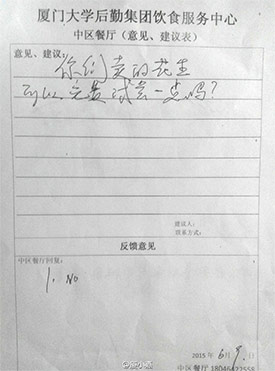 厦门大学后勤集团饮食服务中心
中区餐厅（意见、建议表）
意见、建议：
你们卖的花生
可以免费试尝一支吗？
建议人：
联系方式：
反馈意见
中区餐厅回复：
1. No
2015 年 6月 9.日
中区餐厅 18046422558